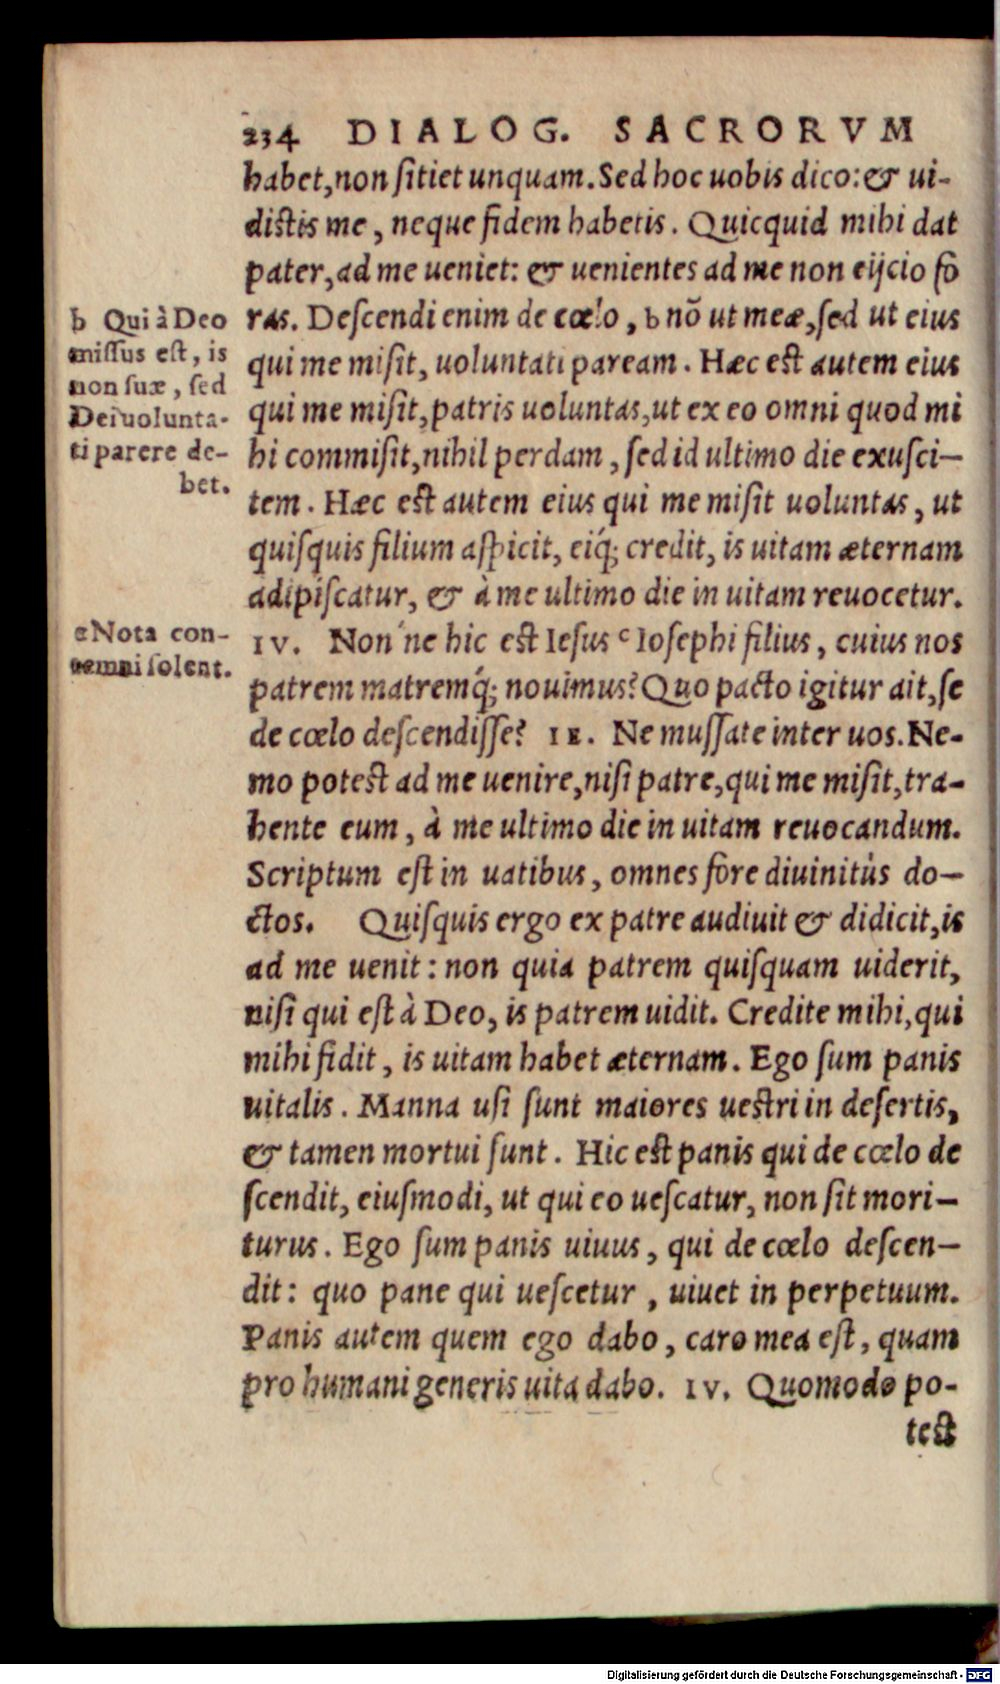 234 DIALOG. SACRORVM
habet, non sitiet unquam. Sed hoc uobis dico: & ui-
distis me, neque fidem habetis. Quicquid mihi dat
pater, ad me ueniet: & uenientes ad me non eijcio fo
ras. Descendi enim de cœlo, b nō ut meæ, sed ut eius
qui me misit, uoluntati paream. Hæc est autem eius
qui me misit, patris uoluntas, ut ex eo omni quod mi
hi commisit, nihil perdam, sed id ultimo die exusci-
tem. Hæc est autem eius qui me misit uoluntas, ut
quisquis filium aspicit, eiq́; credit, is uitam æternam
adipiscatur, & à me ultimo die in uitam reuocetur.
IV. Non'ne hic est Iesus c Iosephi filius, cuius nos
patrem matremq́; nouimus? Quo pacto igitur ait, se
de cœlo descendisse? IE. Ne mussate inter uos. Ne-
mo potest ad me uenire, nisi patre, qui me misit, tra-
hente eum, à me ultimo die in uitam reuocandum.
Scriptum est in uatibus, omnes fore diuinitùs do-
ctos. Quisquis ergo ex patre audiuit & didicit, is
ad me uenit: non quia patrem quisquam uiderit,
nisi qui est à Deo, is patrem uidit. Credite mihi, qui
mihi fidit, is uitam habet æternam. Ego sum panis
uitalis. Manna usi sunt maiores uestri in desertis,
& tamen mortui sunt. Hic est panis qui de cœlo de
scendit, eiusmodi, ut qui eo uescatur, non sit mori-
turus. Ego sum panis uiuus, qui de cœlo descen-
dit: quo pane qui uescetur, uiuet in perpetuum.
Panis autem quem ego dabo, caro mea est, quam
pro humani generis uita dabo. IV. Quomodo po-
test
b Qui à Deo
missus est, is
non suæ, sed
Dei uolunta-
ti parere de-
bet.
c Nota con-
temni solent.
Digitalisierung gefördert durch die Deutsche Forschungsgemeinschaft - DFG